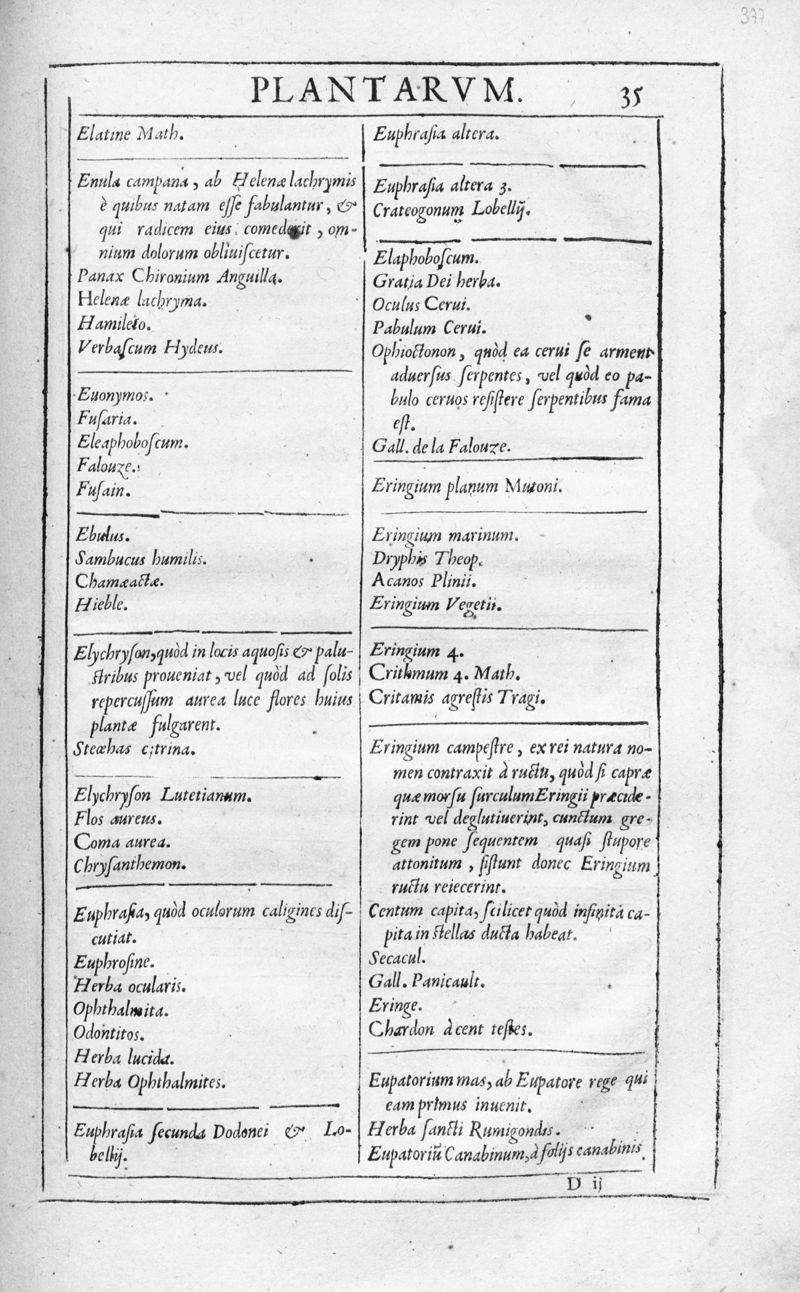 377
PLANTARVM. 35
Elatine Math.
Enula campana, ab Helenæ lachrymis
è quibus natam eſſe fabulantur, &
qui radicem eius comederit, om-
nium dolorum obliuiſcetur.
Panax Chironium Anguilla.
Helenæ lachryma.
Hamileto.
Verbaſcum Hydeus.
Euonymos.
Fuſaria.
Eleaphoboſcum.
Falouze.
Fuſain.
Ebulus.
Sambucus humilis.
Chamæactæ.
Hieble.
Elychryſon, quòd in locis aquoſis & palu-
ſtribus proueniat, vel quòd ad ſolis
repercuſſum aurea luce flores huius
plantæ fulgarent.
Stœchas citrina.
Elychryſon Lutetianum.
Flos aureus.
Coma aurea.
Chryſanthemon.
Euphraſia, quòd oculorum caligines diſ-
cutiat.
Euphroſine.
Herba ocularis.
Ophthalmita.
Odontitos.
Herba lucida.
Herba Ophthalmites.
Euphraſia ſecunda Dodonei & Lo-
bellij.
Euphraſia altera.
Euphraſia altera 3.
Crateogonum Lobellij.
Elaphoboſcum.
Gratia Dei herba.
Oculus Cerui.
Pabulum Cerui.
Ophioctonon, quòd ea cerui ſe arment
aduerſus ſerpentes, vel quòd eo pa-
bulo ceruos reſiſtere ſerpentibus fama
eſt.
Gall. de la Falouze.
Eringium planum Mutoni.
Eringium marinum.
Dryphis Theop.
Acanos Plinii.
Eringium Vegetii.
Eringium 4.
Crithmum 4. Math.
Critamis agreſtis Tragi.
Eringium campeſtre, ex rei natura no-
men contraxit à ructu, quòd ſi capræ
quæ morſu ſurculum Eringii præcide-
rint vel deglutiuerint, cunctum gre-
gem pone ſequentem quaſi ſtupore
attonitum, ſiſtunt donec Eringium
ructu reiecerint.
Centum capita, ſcilicet quòd infinita ca-
pita in ſtellas ducta habeat.
Secacul.
Gall. Panicault.
Eringe.
Chardon à cent teſtes.
Eupatorium mas, ab Eupatore rege qui
eam primus inuenit.
Herba ſancti Rumigondis.
Eupatoriũ Canabinum, à folijs canabinis.
D ij